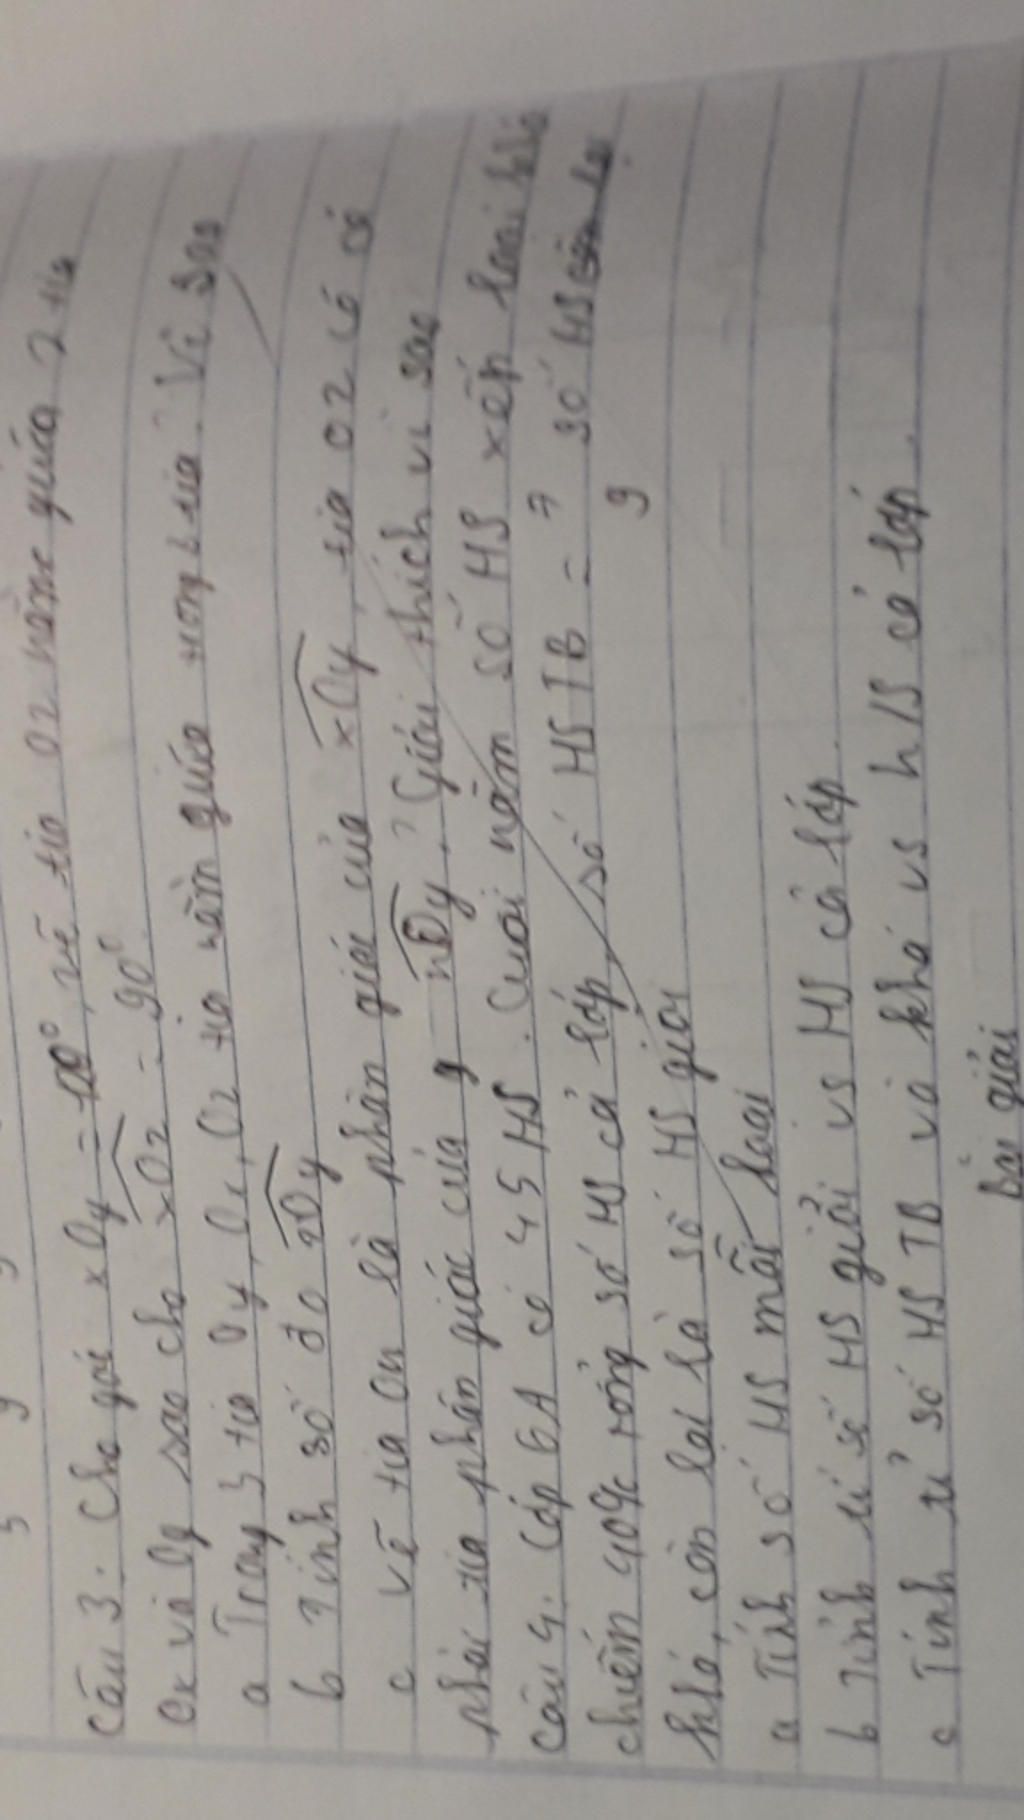 Câu 3. Cho góc xOy = 120°, vẽ tia Oz nằm giữa 2 tia
Ox và Oy sao cho xOz = 90°.
a Trong 3 tia Oy, Ox, Oz tia nằm giữa Vì sao
b Tính số đo zOy
c vẽ tia On là phân giác của xOy, tia Oz có
phải tia phân giác của nOy? Giải thích vì sao
Câu 4. Lớp 6A có 45 HS. Cuối năm số HS xếp loại
chiếm 40% tổng số HS cả lớp, số HS TB = 7/9 số HS
khá, còn lại là số HS giỏi
a Tính số HS mỗi loại
b Tính tỉ số HS giỏi vs HS cả lớp.
c Tính tỉ số HS TB và khá vs HS cả lớp.
Bài giải